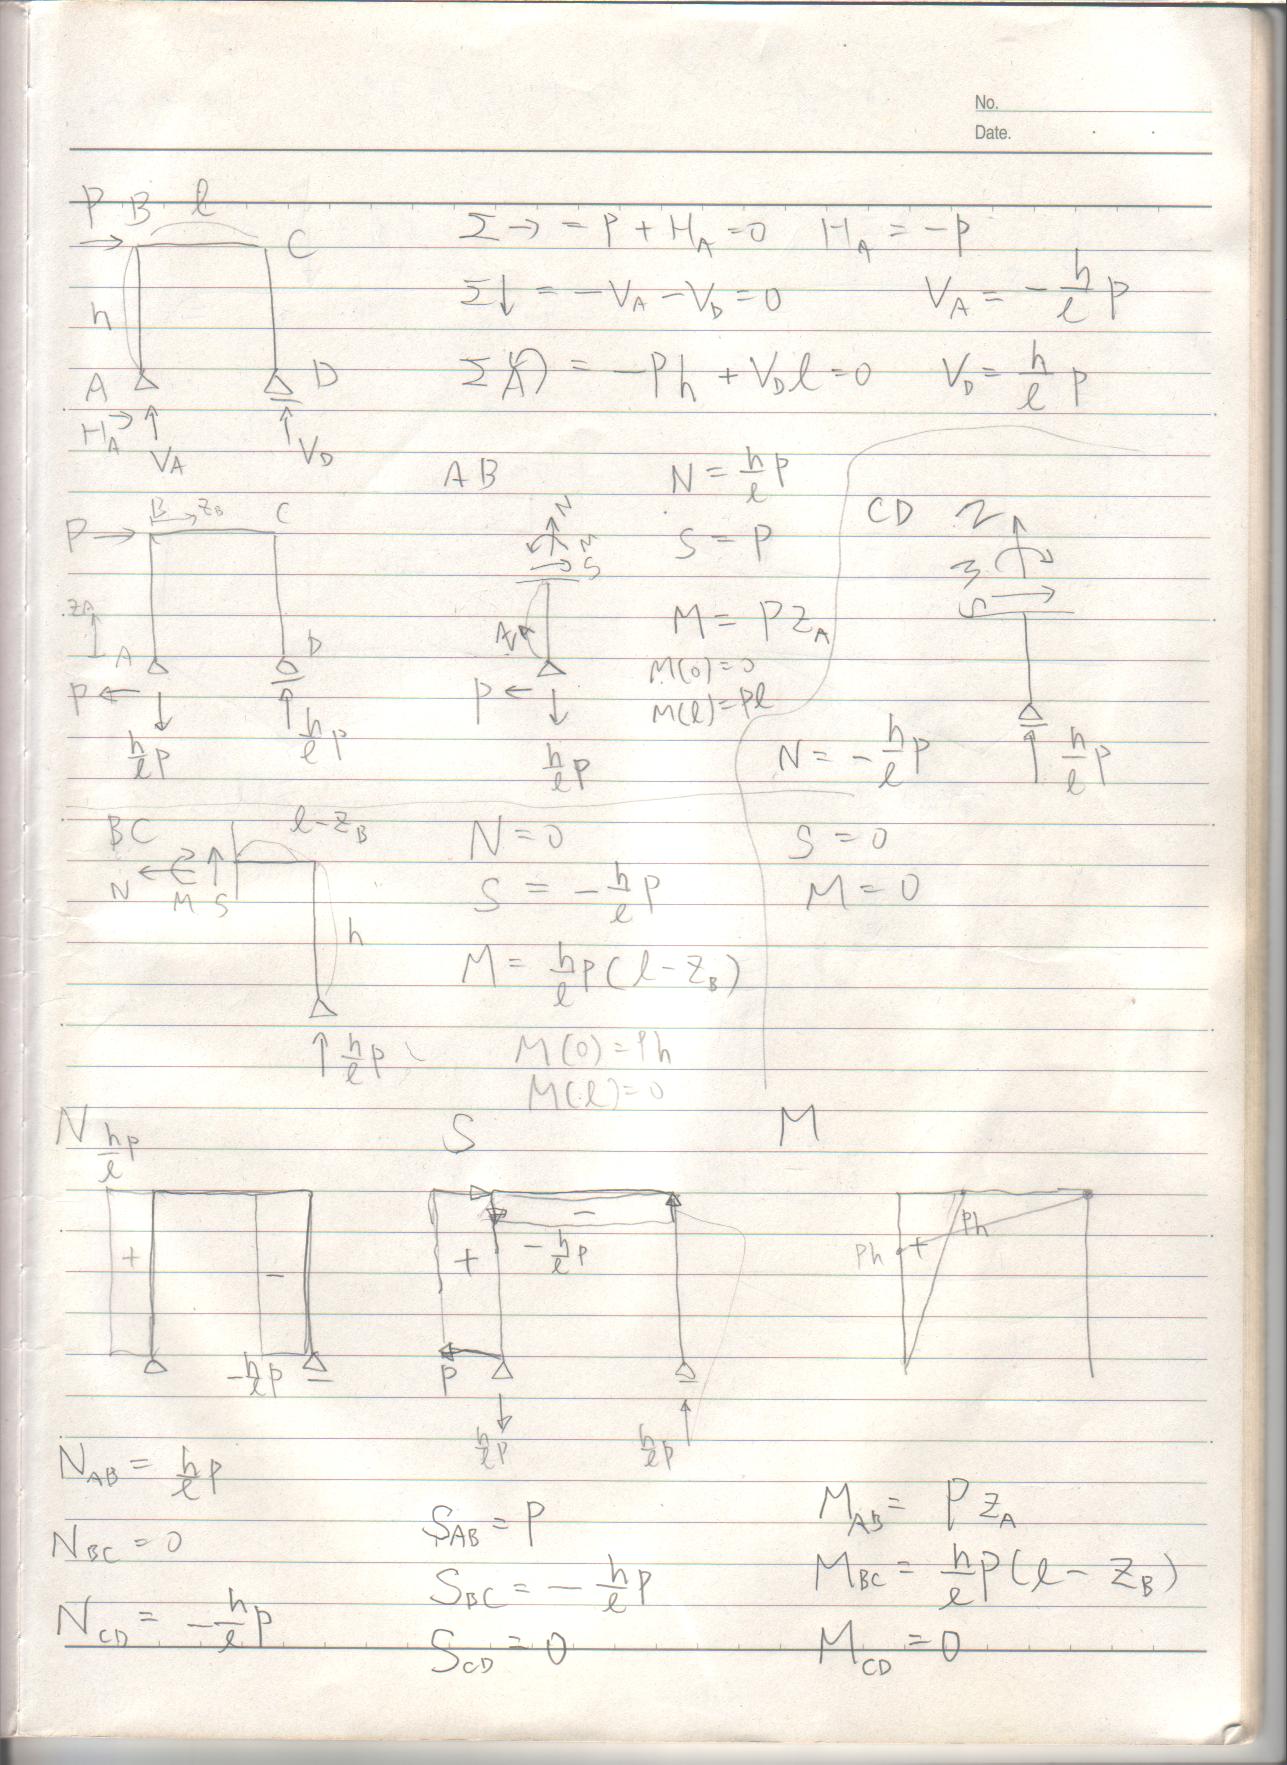 No.
Date.
P B l
C
h
A D
H_A V_A V_D
Σ→ = P + H_A = 0 H_A = -P
Σ↓ = -V_A - V_D = 0 V_A = -h/l P
Σ A = -Ph + V_D l = 0 V_D = h/l P
P B z_B C
z_A
A D
P
h/l P h/l P
AB
N
M
S
P
h/l P
N = h/l P
S = P
M = P z_A
M(0) = 0
M(l) = Pl
CD N
M
S
h/l P
N = -h/l P
S = 0
M = 0
BC l - z_B
N M S
h
h/l P
N = 0
S = -h/l P
M = h/l P (l - z_B)
M(0) = Ph
M(l) = 0
N
h/l P
+ -
-h/l P
S
-
+ -h/l P
P
h/l P h/l P
M
Ph + Ph
N_AB = h/l P
N_BC = 0
N_CD = -h/l P
S_AB = P
S_BC = -h/l P
S_CD = 0
M_AB = P z_A
M_BC = h/l P (l - z_B)
M_CD = 0